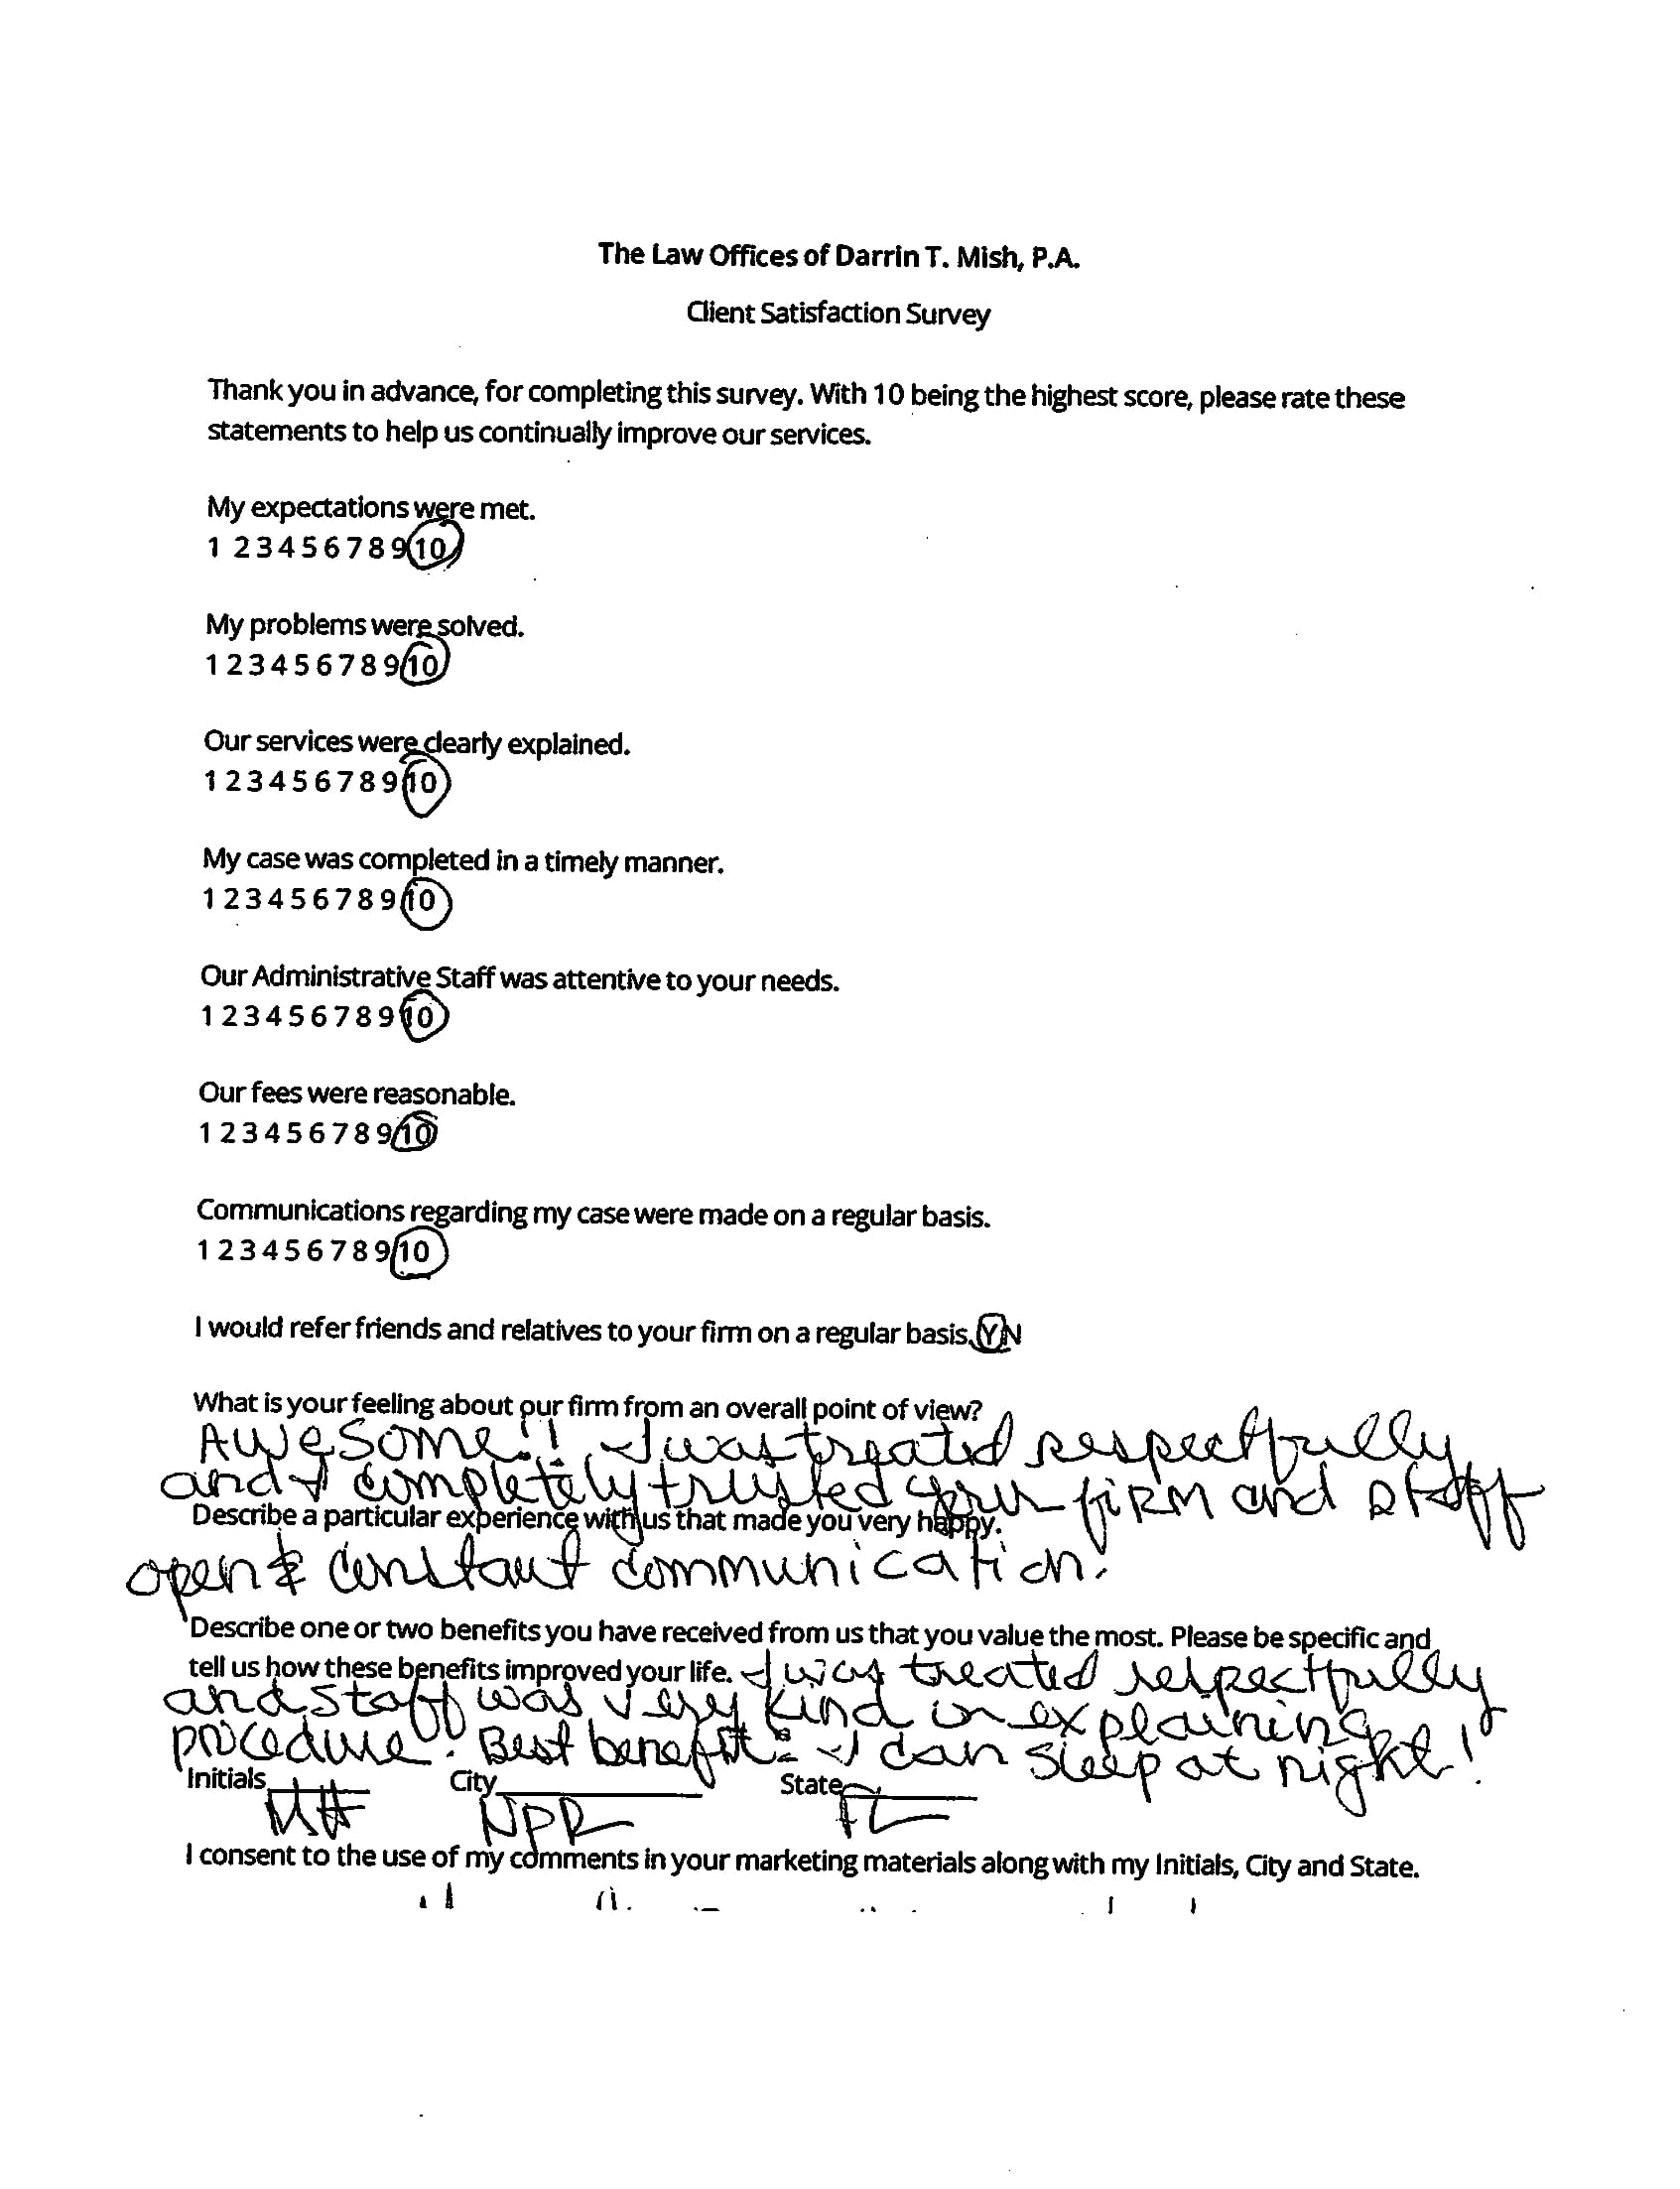 The Law Offices of Darrin T. Mish, P.A.
Client Satisfaction Survey
Thank you in advance, for completing this survey. With 10 being the highest score, please rate these
statements to help us continually improve our services.
My expectations were met.
1 2 3 4 5 6 7 8 9 10
My problems were solved.
1 2 3 4 5 6 7 8 9 10
Our services were clearly explained.
1 2 3 4 5 6 7 8 9 10
My case was completed in a timely manner.
1 2 3 4 5 6 7 8 9 10
Our Administrative Staff was attentive to your needs.
1 2 3 4 5 6 7 8 9 10
Our fees were reasonable.
1 2 3 4 5 6 7 8 9 10
Communications regarding my case were made on a regular basis.
1 2 3 4 5 6 7 8 9 10
I would refer friends and relatives to your firm on a regular basis. Y N
What is your feeling about our firm from an overall point of view?
Awesome!! I was treated respectfully
and I completely trusted your firm and staff
Describe a particular experience with us that made you very happy.
open & constant communication.
Describe one or two benefits you have received from us that you value the most. Please be specific and
tell us how these benefits improved your life. I was treated respectfully
and staff was very kind in explaining
procedure. Best benefit: I can sleep at night!
Initials City State
MH NPR FL
I consent to the use of my comments in your marketing materials along with my Initials, City and State.